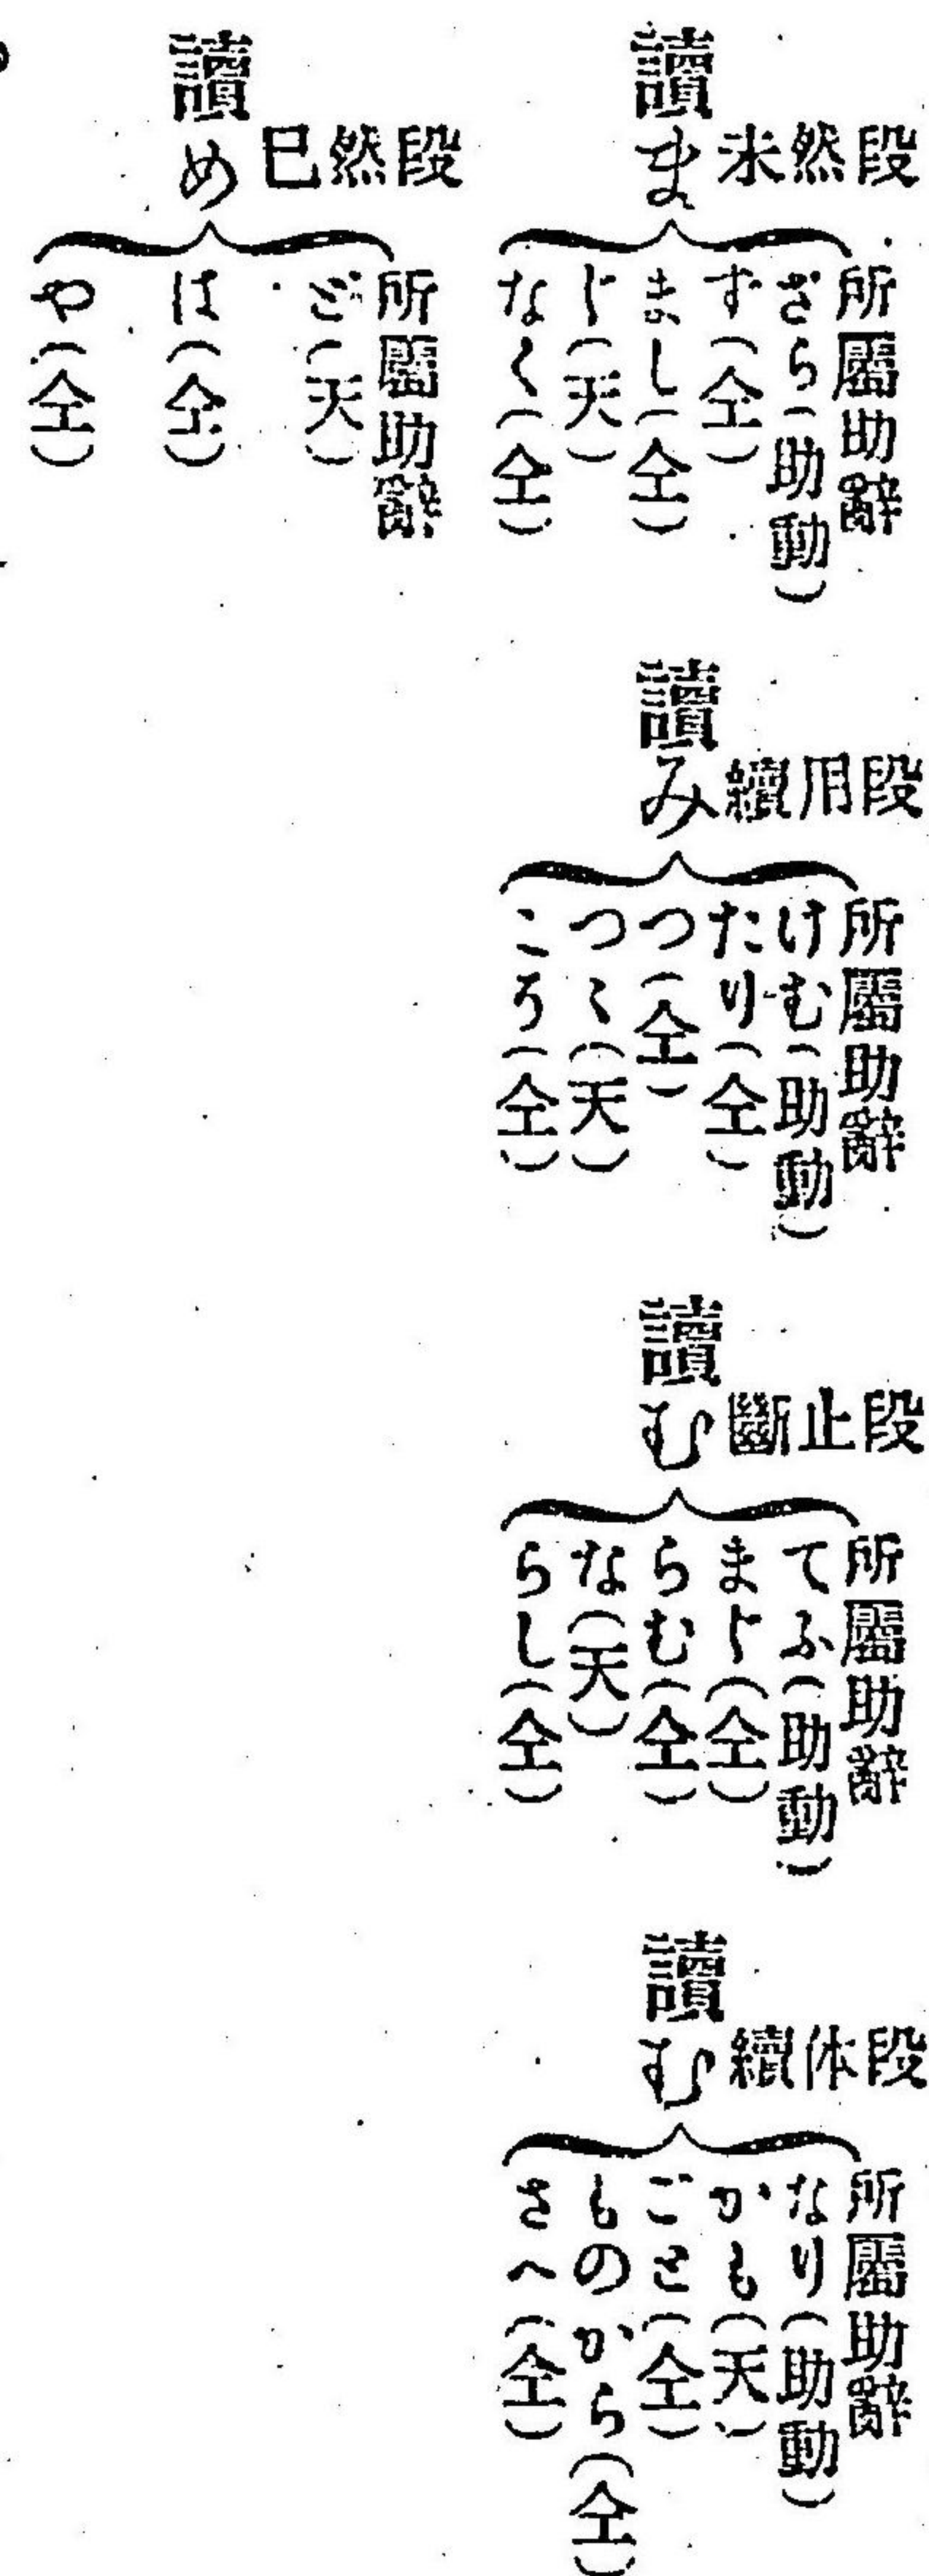 讀ま
未然段
所屬助辭
ざら(助動)
ず(仝)
まし(仝)
じ(天)
なく(仝)
讀み
續用段
所屬助辭
けむ(助動)
たり(仝)
つ(仝)
つゝ(天)
こそ(仝)
讀む
斷止段
所屬助辭
てふ(助動)
まじ(仝)
らむ(仝)
な(天)
らし(仝)
讀む
續体段
所屬助辭
なり(助動)
かも(天)
ごと(仝)
ものから(仝)
さへ(仝)
讀め
巳然段
所屬助辭
ど(天)
は(仝)
や(仝)